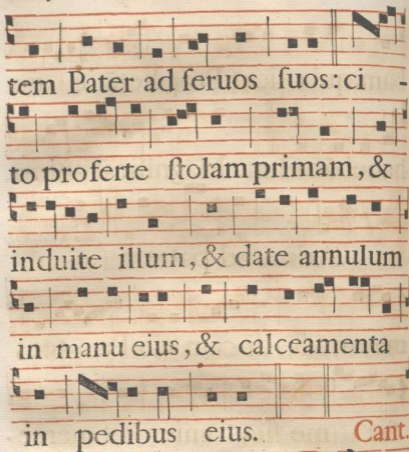 tem Pater ad ſeruos ſuos: ci -
to proferte ſtolam primam, &
induite illum, & date annulum
in manu eius, & calceamenta
in pedibus eius. Cant.